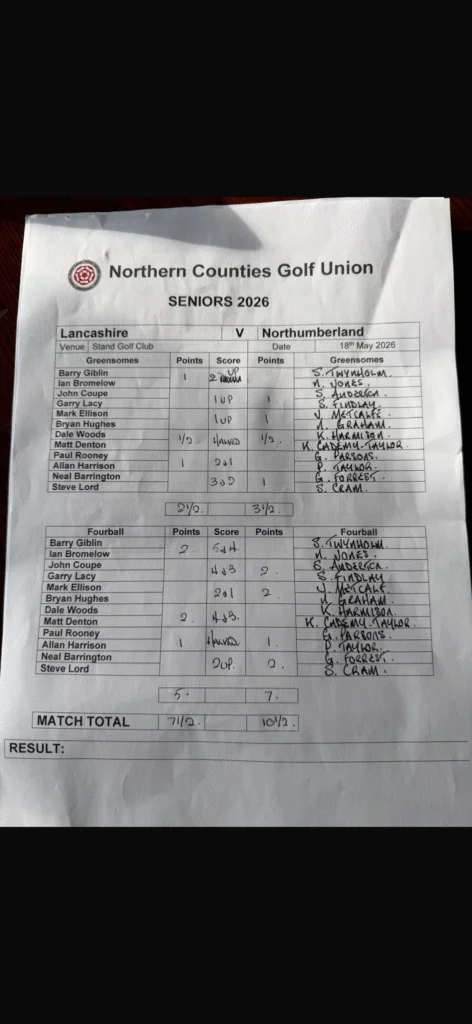 Northern Counties Golf Union
SENIORS 2026
Lancashire V Northumberland
Venue Stand Golf Club Date 18th May 2026
Greensomes Points Score Points Greensomes
Barry Giblin 1 2 UP S. TWYNHOLM.
Ian Bromelow N. JONES.
John Coupe 1 UP 1 S. ANDERSON.
Garry Lacy S. FINDLAY.
Mark Ellison 1 UP 1 J. METCALFE.
Bryan Hughes N. GRAHAM.
Dale Woods 1/2 HALVED 1/2 K. HARMISON.
Matt Denton K. CADEMY-TAYLOR.
Paul Rooney 1 2&1 G. PARSONS.
Allan Harrison P. TAYLOR.
Neal Barrington 3&2 1 G. FORREST.
Steve Lord S. CRAM.
2 1/2. 3 1/2.
Fourball Points Score Points Fourball
Barry Giblin 2. 5&4 S. TWYNHOLM
Ian Bromelow N. JONES.
John Coupe 4&3 2. S. ANDERSON.
Garry Lacy S. FINDLAY
Mark Ellison 2&1 2. J. METCALF.
Bryan Hughes N. GRAHAM.
Dale Woods 2. 4&3. K. HARMISON.
Matt Denton K. CADEMY-TAYLOR.
Paul Rooney 1 HALVED 1. G. PARSONS.
Allan Harrison P. TAYLOR.
Neal Barrington 2UP. 2. G. FORREST.
Steve Lord S. CRAM.
5. 7.
MATCH TOTAL 7 1/2. 10 1/2.
RESULT: